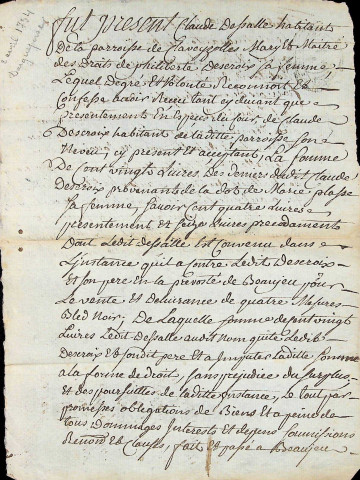 fut present Claude Dessalle habitant
de la parroisse de Claveyzolles Mary et Maitre
des Droits de philiberte Descroix sa femme,
Lequel Degré et Volonté Reconnoit et
Confesse avoir Receu tant cy devant que
presentement en Especes du jour, de Claude
Descroix habitant de laditte parroisse son
Neveu, cy present et acceptant, La somme
De cent vingt Livres des deniers dudit Claude
Descroix provenants de la dot de Marie
sa femme, savoir cent quatre Livres
presentement et seize Livres precedamment
Dont Ledit Dessalle est Convenu dans
L'instance qu'il a contre Ledit Descroix
et son pere en la prevosté de Beaujeu pour
La vente et delivrance de quatre Mesures
Bled Noir, De Laquelle somme de cent vingt
Livres Ledit Dessalle audit Nom quitte Ledit
Descroix et sondit pere et a laditte somme
a la forme de droit, sans prejudice du surplus,
et des poursuittes de laditte instance, Le tout par
promesses obligations de Biens et a peine de
tous Dommages Interests et depens soumissions
Renon et Clauses, fait et passé a Beaujeu